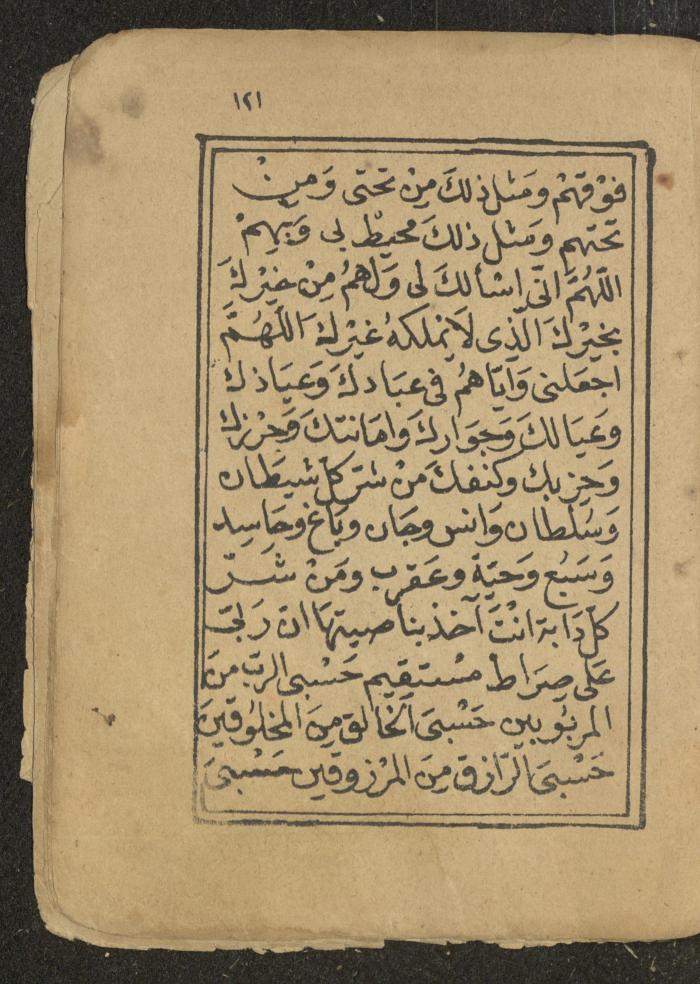 ١٢١
فَوْقَهُمْ وَمَثَلُ ذٰلِكَ مِنْ تَحْتِى وَمِنْ
تَحْتِهِمِ وَمَثَلُ ذٰلِكَ مُحِيطٌ بِى وَبِهِمْ
اَللّٰهُمَّ اِنّى اِسْأَلُكَ لى وَلَهُمْ مِنْ خَيْرِكَ
بِخَيْرِكَ الَّذِى لَا يَمْلِكُهُ غَيْرُكَ اَللّٰهُمَّ
اجْعَلْنِى وَاِيَّاهُمْ فِى عِبَادِكَ وَعِيَاذِكَ
وَعِيَالِكَ وَجِوَارِكَ وَاَمَانَتِكَ وَحِرْزِكَ
وَحِزْبِكَ وَكَنَفِكَ مِنْ شَرِّ كُلِّ شَيْطَانٍ
وَسُلْطَانٍ وَاِنْسٍ وَجَانٍ وَبَاغٍ وَحَاسِدٍ
وَسَبُعٍ وَحَيَّةٍ وَعَقْرَبٍ وَمِنْ شَرِّ
كُلِّ دَابَةٍ اَنْتَ آخِذٌ بِنَاصِيَتِهَا اِنَّ رَبِّى
عَلَى صِرَاطٍ مُسْتَقِيمٍ حَسْبِىَ الرَّبُّ مِنَ
الْمَرْبُوبِينَ حَسْبِىَ الْخَالِقُ مِنَ الْمَخْلُوقِينَ
حَسْبِىَ الرَّازِقُ مِنَ الْمَرْزُوقِينَ حَسْبِىَ